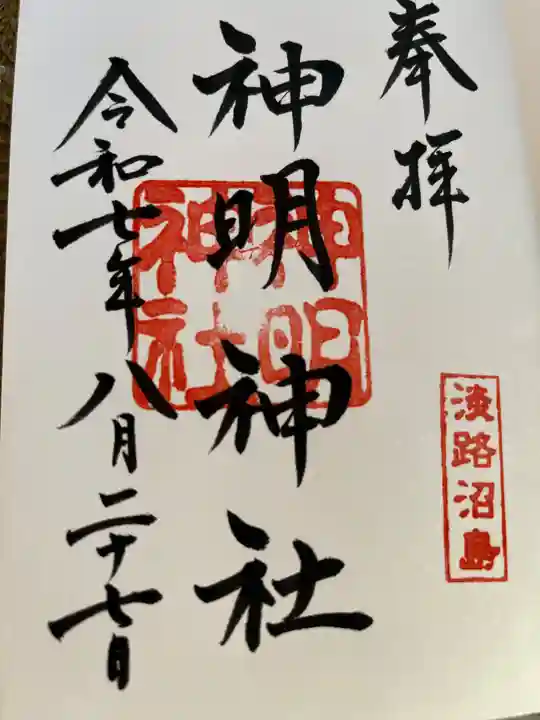 奉拝
淡路沼島
神明神社
神明
神社
令和七年八月二十七日